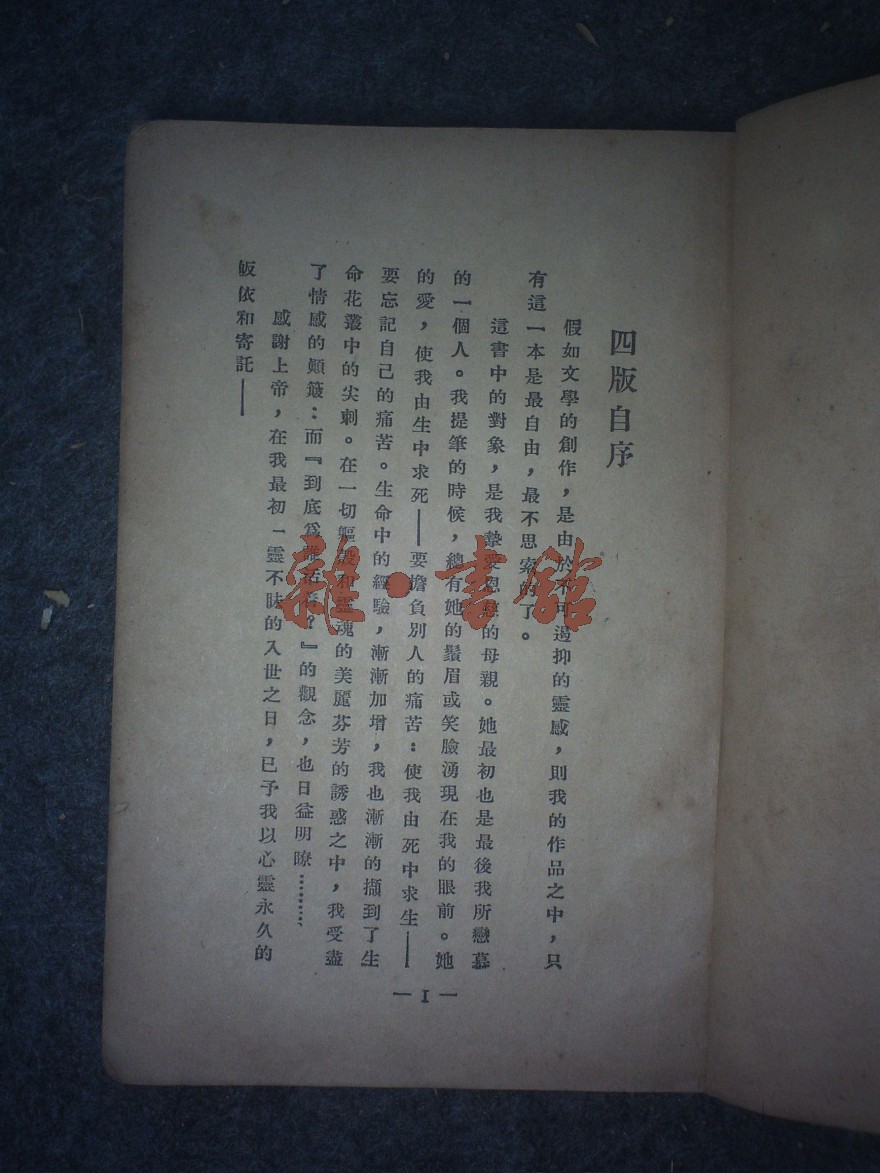 四版自序
假如文學的創作，是由於不可遏抑的靈感，則我的作品之中，只
有這一本是最自由，最不思索的了。
這書中的對象，是我摯愛恩慈的母親。她最初也是最後我所戀慕
的一個人。我提筆的時候，總有她的顰眉或笑臉湧現在我的眼前。她
的愛，使我由生中求死——要擔負別人的痛苦：使我由死中求生——
要忘記自己的痛苦。生命中的經驗，漸漸加增，我也漸漸的擷到了生
命花叢中的尖刺。在一切軀殼和靈魂的美麗芬芳的誘惑之中，我受盡
了情感的顛簸：而『到底爲誰活着？』的觀念，也日益明瞭………，
感謝上帝，在我最初一靈不昧的入世之日，已予我以心靈永久的
皈依和寄託——
— I —
雜·書館